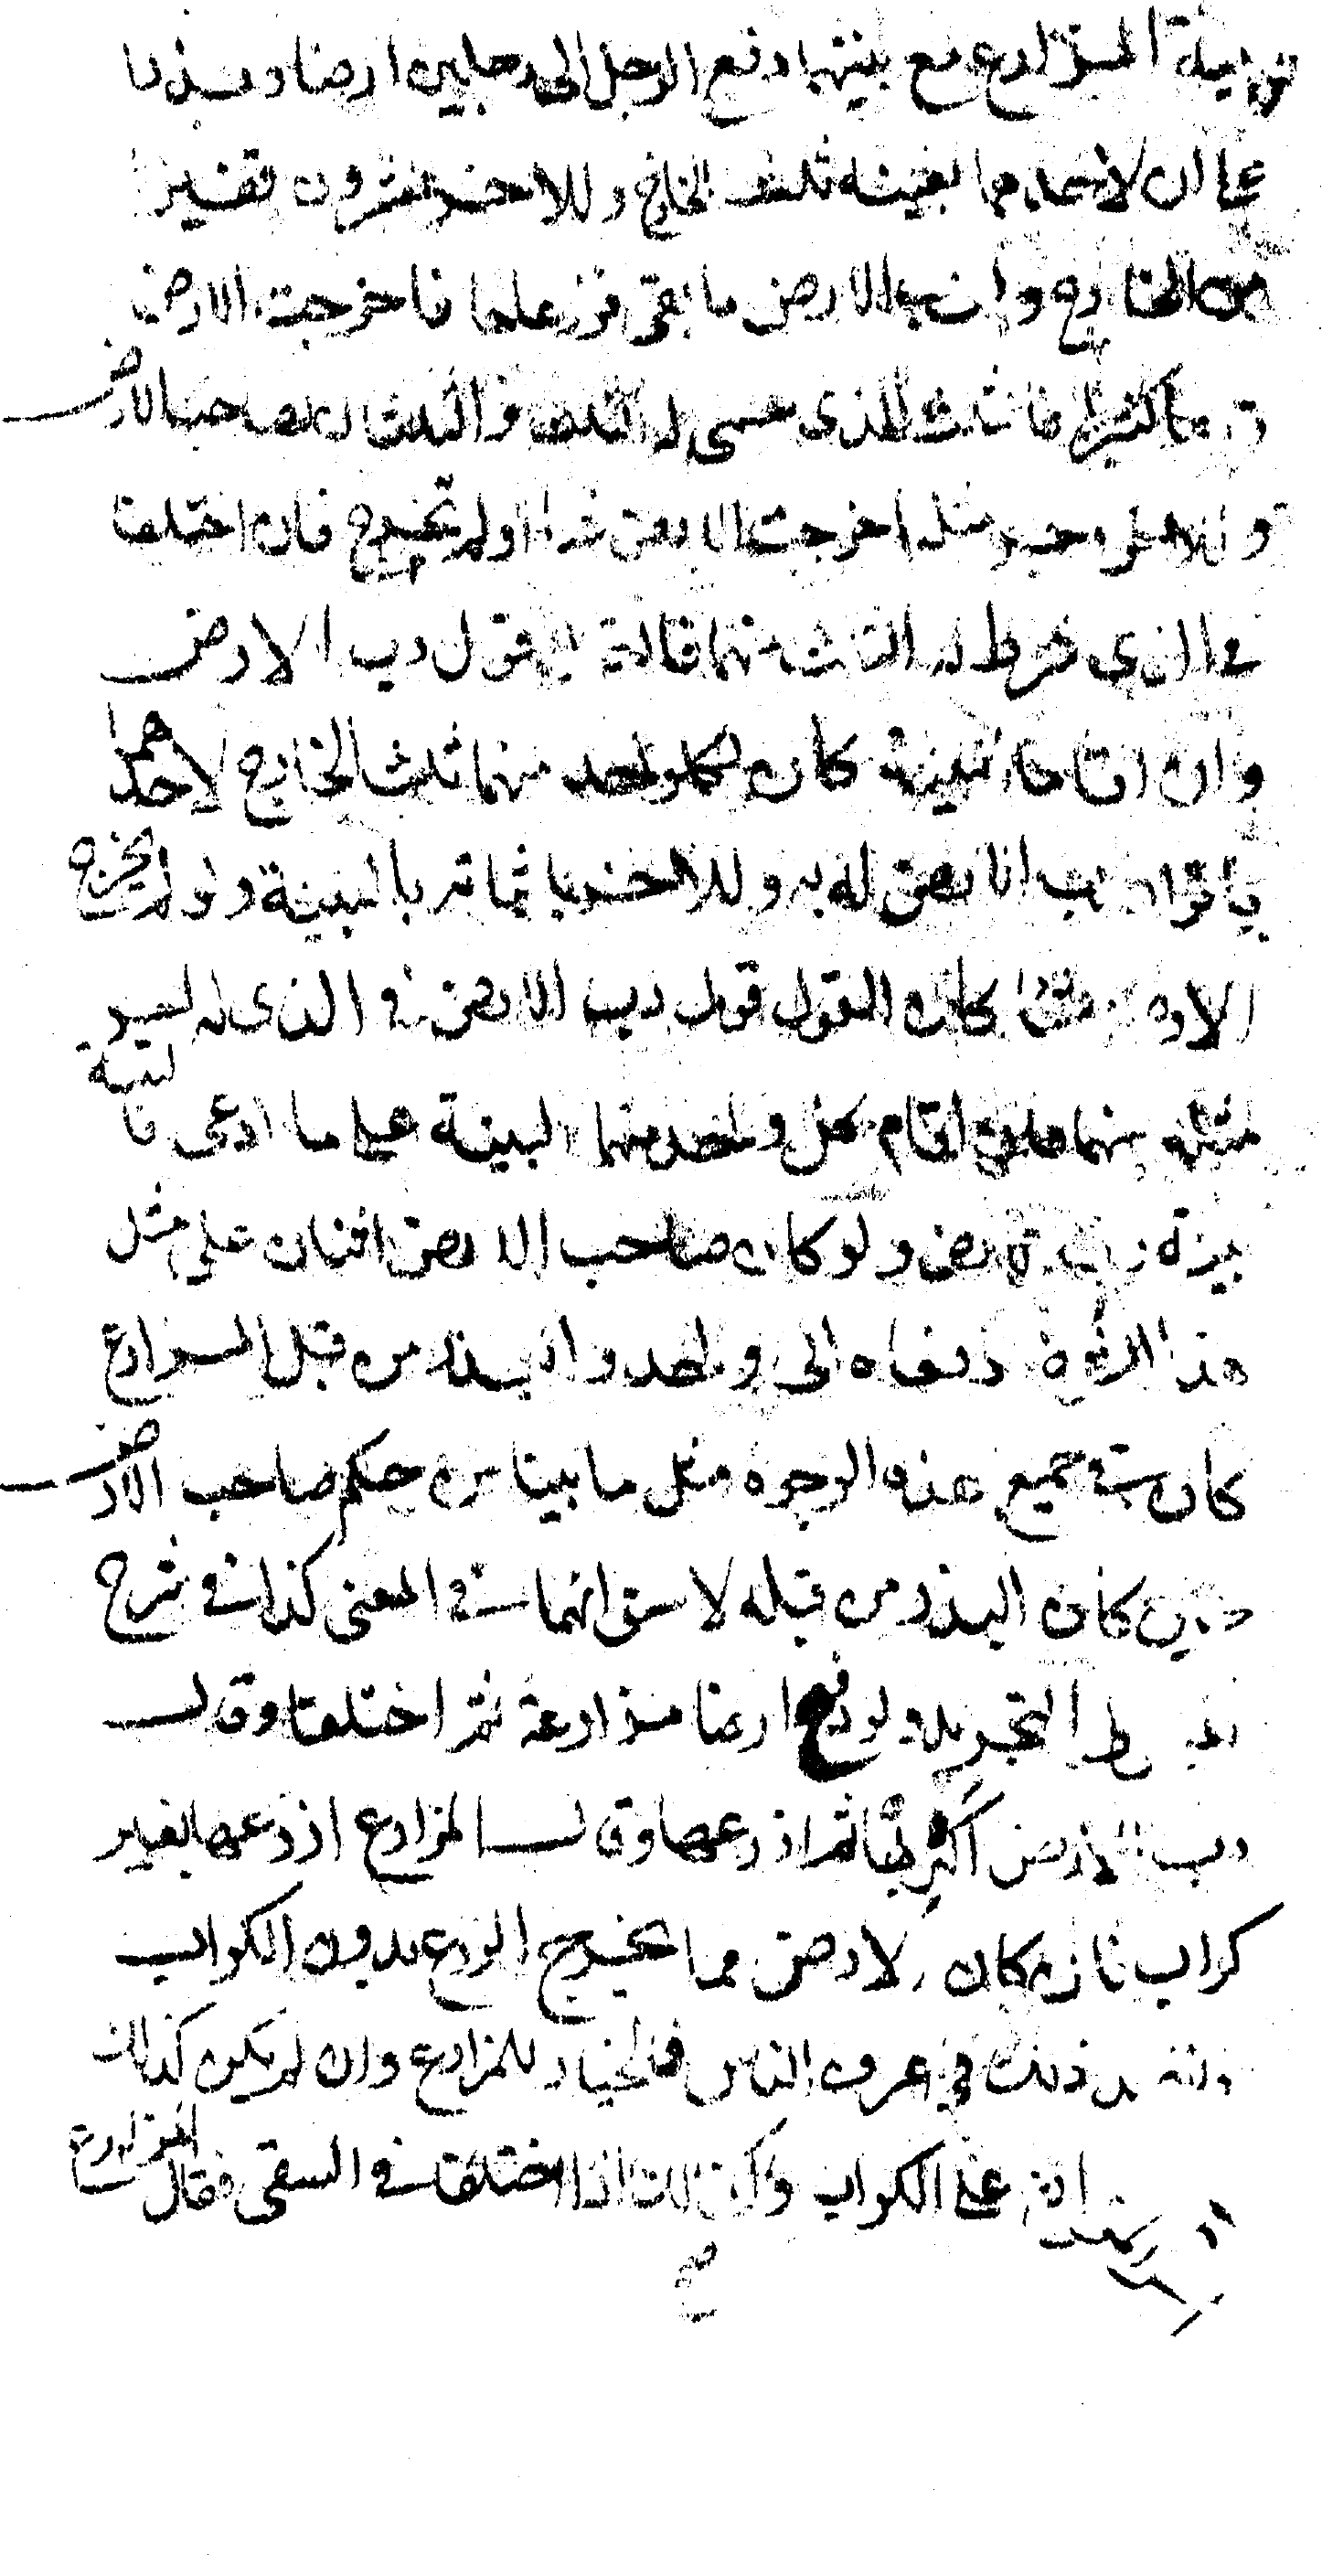 بينة المزارع مع بينتها دفع الرجل الى رجلين ارضا وبذرا
على ان لاحدهما بعينه ثلث الخارج وللاخر عشرون قفيزا
من الخارج ولرب الارض ما بقى فزرعاها فاخرجت الارض
كثيرا فالثلث للذى سمى له الثلث والثلثان لصاحب الارض
وللاخر اجر مثله اخرجت الارض شيئا اولم تخرج فان اختلفا
فى الذى شرط له الثلث منهما فالقول قول رب الارض
وان اقاما البينة كان لكل واحد منهما ثلث الخارج لاحدهما
باقرار رب الارض له به وللاخر باثباته بالبينة ولو لم يخرج
الارض شيئا كان القول قول رب الارض فى الذى له اجر
مثله منهما فان اقام كل واحد منهما البينة على ما ادعى فالبينة
بينة رب الارض ولو كان صاحب الارض اثنان على مثل
هذا الوجه دفعاه الى واحد والبذر من قبل المزارع
كان فى جميع هذه الوجوه مثل ما بينا من حكم صاحب الارض
حين كان البذر من قبله لاستوائهما فى المعنى كذا فى شرح
ولو دفع ارضا مزارعة ثم اختلفا وقال
رب الارض اكثر بها ثم ازرعها وقال المزارع ازرعها بغير
كراب فان كان الارض مما يخرج الزرع بدون الكراب
ذلك فى عرف الناس فالخيار للمزارع وان لم يكن كذلك
على الكراب وكذلك اذا اختلفا فى السقى فقال المزارع